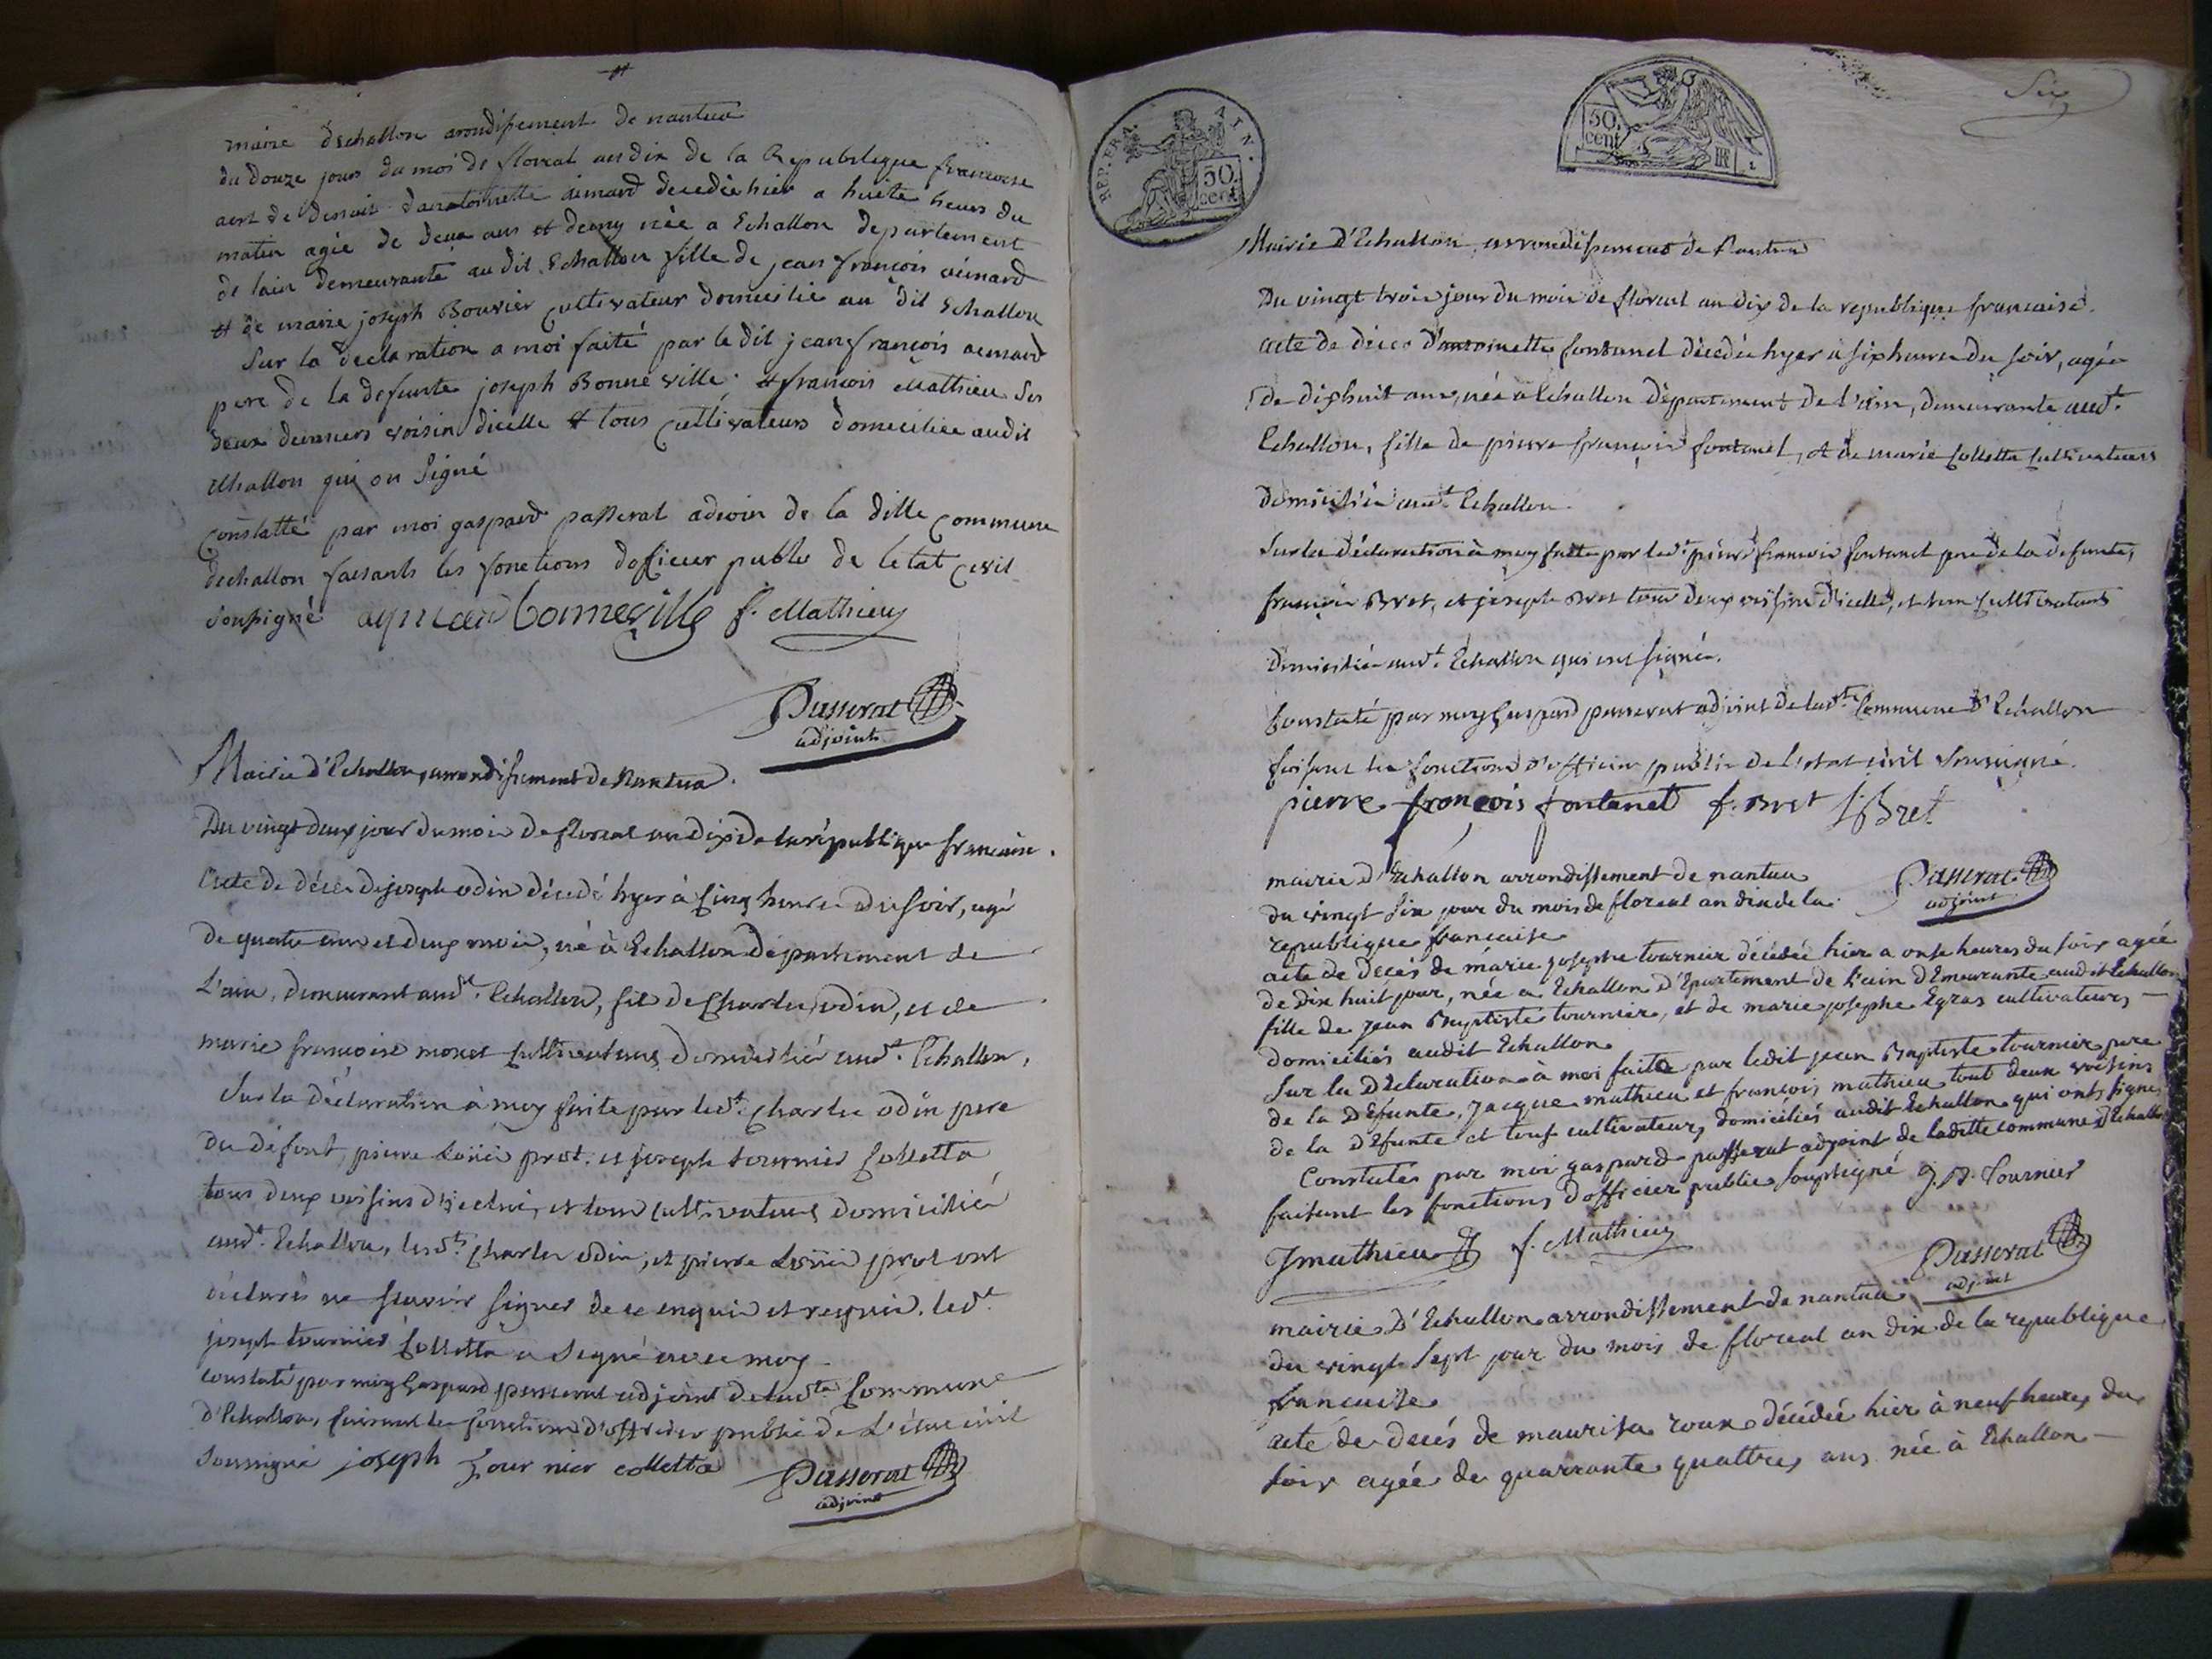 maire dechallon arondisement de nantua
du douze jours du mois de floreal an dix de la Republeque francoise
act de desait dantoinette aimard decedée hier a huite heurs du
matin agée de deux ans et demy née a Echallon departement
de lain demeurante au dit Echallon fille de jean françois aimard
et de marie joseph Bouvier cultivateur domicilié au dit Echallon
Sur la declaration a moi faité par le dit jean françois aemard
pere de la defunte joseph Bonneville et françois Mathieu Ses
deux derniers voisin dicelle et tous cultivateurs domeciliée audit
Echallon qui on Signé
constatté par moi gaspard passerat adioin de la ditte commune
dechallon faisants les fonctions dofficier public de letat civil
Soupigné aymard bonneville f. Mathieu
Passerat
adjoint
Mairie d'Echallon, arrondissement de Nantua.
Du vingt deux jour du mois de floreal an dix de la république francaise.
Acte de décès de joseph odin décédé hyer à cinq heures du soir, agé
de quatre ans et deux mois, né à Echallon département de
L'ain, demeurant aud.t Echallon, fils de Charles odin, et de
marie françoise monet cultivateurs domiciliés aud.t Echallon,
Sur la déclaration à moy faite par led.t Charles odin pere
du défunt, pierre Loüis prot. et joseph tournier Colletta
tous deux voisins d'icelui, et tous cultivateurs domiciliés
aud.t Echallon, lesd.ts Charles odin, et pierre Loüis prot ont
déclarés ne sçavoir signer de ce enquis et requis. led.t
joseph tournier Colletta a Signé avec moy
constaté par moy Gaspard passerat adjoint de lad.te Commune
d'Echallon, faisant les fonctions d'officier public de L'état civil
soussigné joseph tournier colletta
Passerat
adjoint
Six
REP. FRA. AIN.
50. cent
50. cent
Mairie d'Echallon, arrondissement de Nantua
Du vingt trois jour du mois de floreal an dix de la republique francaise.
acte de décès d'antoinette fontanel décedée hyer à six heures du soir, agée
de dix huit ans, née à Echallon département de l'ain, demeurante aud.t
Echallon, fille de pierre françois fontanel, et de marie Colletta Cultivateurs
domiciliés aud.t Echallon.
Sur la déclaration à moy faite par led.t pierre françois fontanel pere de la defunte,
françois Bret, et joseph Bret tous deux voisins d'icelle, et tous Cultivateurs
domiciliés aud.t Echallon qui ont signé.
Constaté par moy Gaspard passerat adjoint de lad.te Commune d'Echallon
faisant les fonctions d'officier public de l'etat civil soussigné.
pierre françois fontanel f. Bret J Bret
Passerat
adjoint
mairie d'Echallon arrondissement de nantua
du vingt Six jour du mois de floreal an dix de la
republique francaise
acte de decés de marie josephe tournier décédée hier a onse heures du soir agée
de dix huit jour, née a Echallon d'Epartement de L'ain d'Emeurante audit Echallon
fille de jean Baptiste tournier, et de marie josephe Egras cultivateurs
domiciliés audit Echallon
Sur la d'Eclaration à moi faitte par ledit jean Baptiste tournier pere
de la d'Efunte, jacque mathieu et françois mathieu tout deux voisins
de la d'Efunte et tous cultivateurs domiciliés audit Echallon qui onts signes
Constatés par moi gaspard passerat adjoint de laditte commune d'Echallon
faisant les fonctions d'officier public soupsigné j. B. Tournier
J mathieu f. Mathieu
Passerat
adjoint
mairie d'Echallon arrondissement de nantua
du vingt Sept jour du mois de floreal an dix de la republique
francaise
acte de decés de maurisa roux décédée hier à neuf heures du
soir agée de quarrante quattres ans née à Echallon